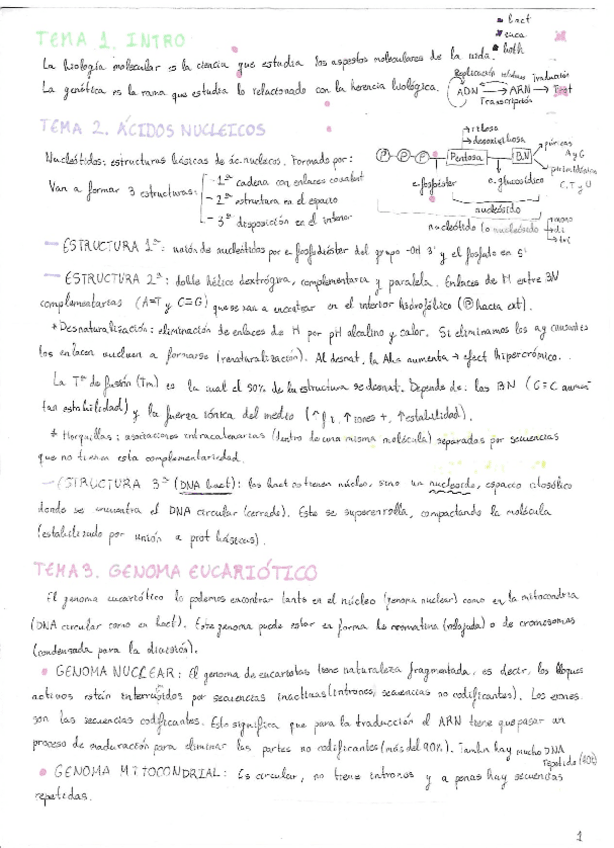 • bact
• euca
• both
TEMA 1. INTRO
La biología molecular es la ciencia que estudia los aspectos moleculares de la vida.
La genética es la rama que estudia lo relacionado con la herencia biológica.
Replicación Traducción
ADN → ARN → Prot
Transcripción
TEMA 2. ÁCIDOS NUCLEICOS
Nucleótidos: estructuras básicas de ác. nucleicos. Formado por:
Van a formar 3 estructuras:
- 1ª cadena con enlaces covalent
- 2ª estructura en el espacio
- 3ª disposición en el interior
→ ribosa
→ desoxirribosa
P P P Pentosa B.N
púricas
A y G
pirimidínicas
C, T y U
e. fosfoéster e. glucosídico
nucleósido
nucleótido (o nucleósido
mono
di
tri
— ESTRUCTURA 1ª: unión de nucleótidos por e. fosfodiéster del grupo -OH 3' y el fosfato en 5'
— ESTRUCTURA 2ª: doble hélice dextrógira, complementaria y paralela. Enlaces de H entre BN
complementarias (A=T y C≡G) que se van a encontrar en el interior hidrofólico (P hacia ext).
* Desnaturalización: eliminación de enlaces de H por pH alcalino y calor. Si eliminamos los ag causantes
los enlaces vuelven a formarse (renaturalización). Al desnat. la Abs aumenta → efect hipercrómico.
La Tª de fusión (Tm) es la cual el 50% de la estructura se desnat. Depende de: las BN (G≡C aumen
tan estabilidad) y la fuerza iónica del medio (↑f i, ↑iones +, ↑estabilidad).
* Horquillas: asociaciones intracatenarias (dentro de una misma molécula) separadas por secuencias
que no tienen esta complementariedad.
— ESTRUCTURA 3ª (DNA bact): las bact no tienen núcleo, sino un nucleoide, espacio citosólico
donde se encuentra el DNA circular (cerrado). Este se superenrolla, compactando la molécula
(estabilizado por unión a prot básicas).
TEMA 3. GENOMA EUCARIÓTICO
El genoma eucariótico lo podemos encontrar tanto en el núcleo (genoma nuclear) como en la mitocondria
(DNA circular como en bact). Este genoma puede estar en forma de cromatina (relajada) o de cromosomas
(condensada para la división).
• GENOMA NUCLEAR: El genoma de eucariotas tiene naturaleza fragmentada, es decir, los bloques
activos están interrumpidos por secuencias inactivas (intrones, secuencias no codificantes). Los exones
son las secuencias codificantes. Esto significa que para la traducción el ARN tiene que pasar un
proceso de maduración para eliminar las partes no codificantes (más del 90%). Tambn hay mucho DNA
repetido
• GENOMA MITOCONDRIAL: Es circular, no tiene intrones y a penas hay secuencias
repetidas.
1